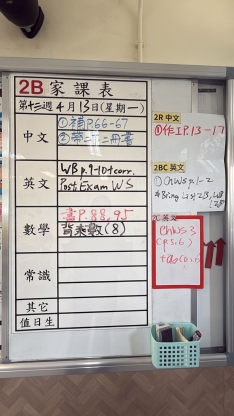 2B 家課表
第十三週 4月13日(星期一)
中文
①補P.66-67
②帶
英文
WB p.9-10+corr.
Post Exam WS
數學
書P.88, 95
背乘數(8)
常識
其它
值日生
2R 中文
①作I P.13-17
2BC 英文
①ChWS p.1-2
Bring
2C 英文
ChWS 3
(p.5,6)